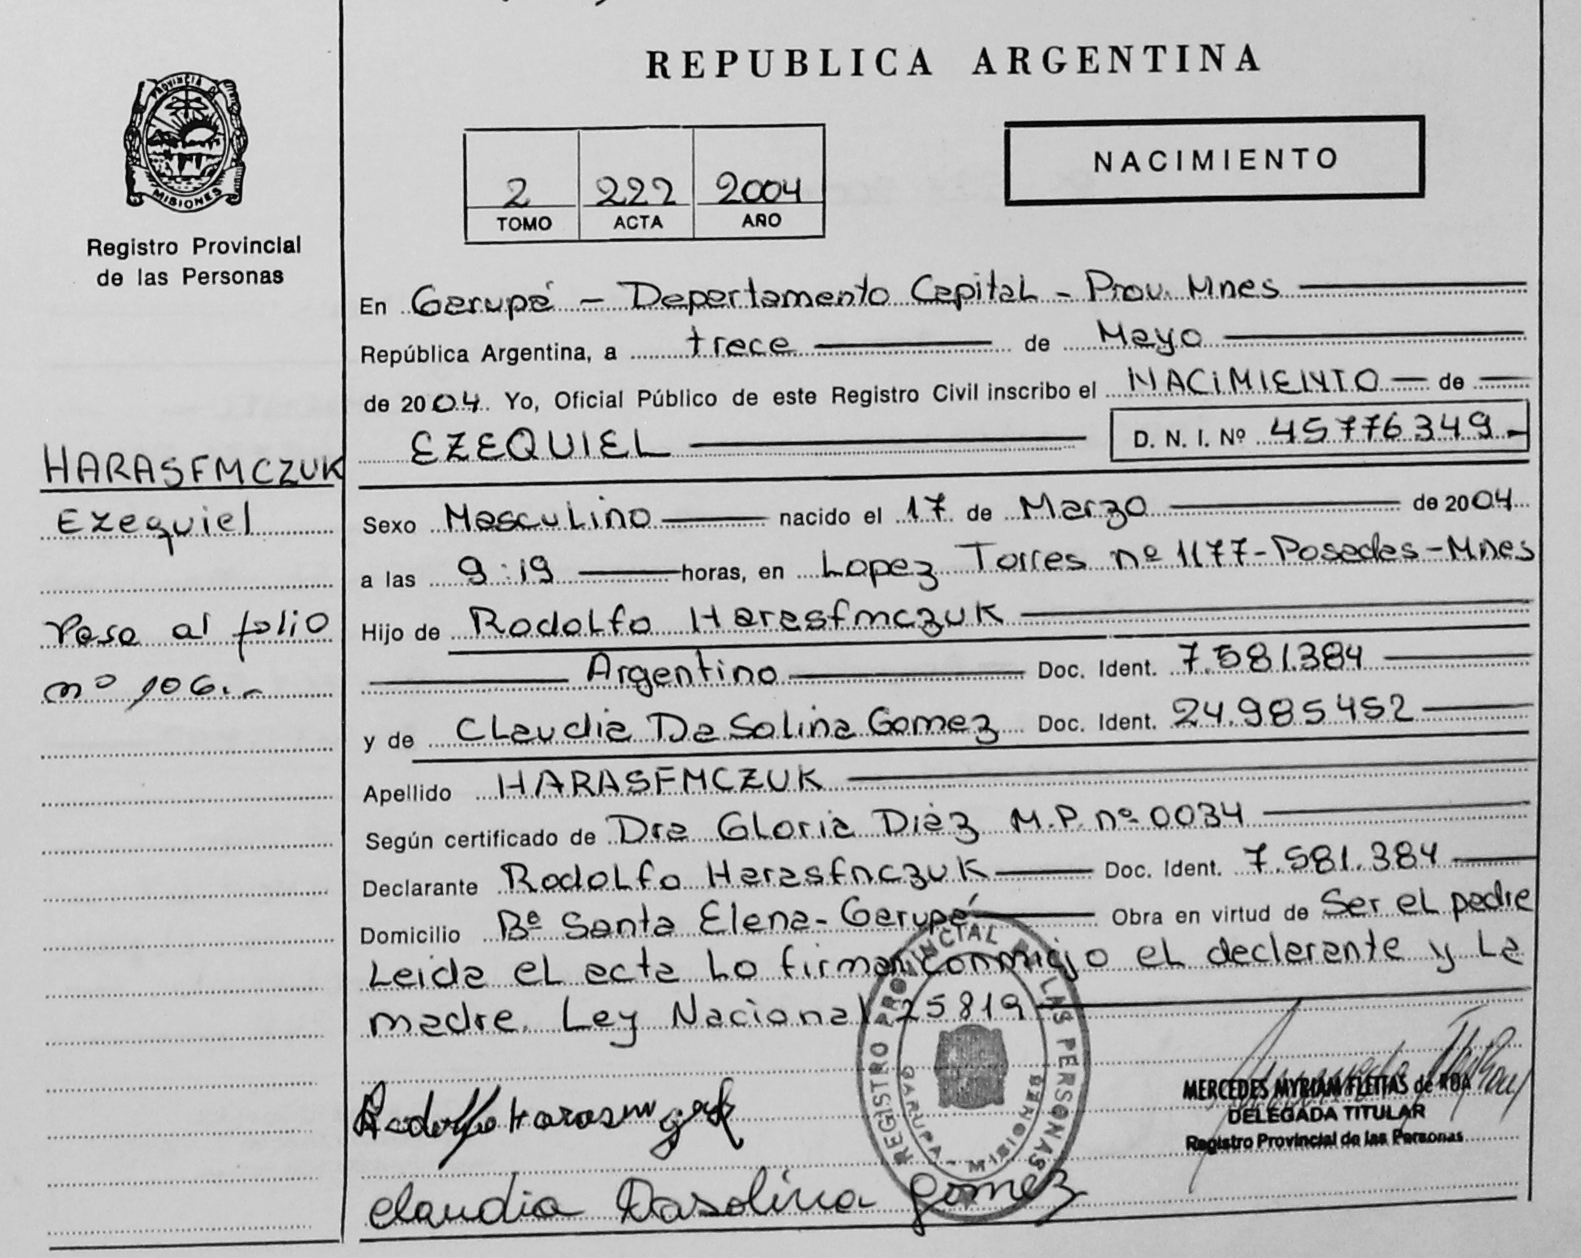 REPUBLICA ARGENTINA
PROVINCIA DE
MISIONES
Registro Provincial
de las Personas
2 222 2004
TOMO ACTA AÑO
NACIMIENTO
En Garupá - Departamento Capital - Prov. Mnes
República Argentina, a trece de Mayo
de 2004. Yo, Oficial Público de este Registro Civil inscribo el NACIMIENTO de
EZEQUIEL D. N. I. Nº 45776349-
HARASFMCZUK
Ezequiel
Sexo Masculino nacido el 17 de Marzo de 2004
a las 9:19 horas, en Lopez Torres nº 1177-Posadas-Mnes
Pasa al folio
nº 106.-
Hijo de Rodolfo Harasfmczuk
Argentino Doc. Ident. 7.581.384
y de Claudia Da Solina Gomez Doc. Ident. 24.985452
Apellido HARASFMCZUK
Según certificado de Dra Gloria Diéz M.P. nº 0034
Declarante Rodolfo Harasfnczuk Doc. Ident. 7.581.384
Domicilio Bº Santa Elena-Garupá Obra en virtud de Ser el padre
Leida el acta lo firman conmigo el declarante y la
madre. Ley Nacional 25819
REGISTRO PROVINCIAL DE LAS PERSONAS
GARUPA - MISIONES
MERCEDES MYRIAM FLEITAS de ROA
DELEGADA TITULAR
Registro Provincial de las Personas
Rodolfo
Claudia Dasolina Gomez